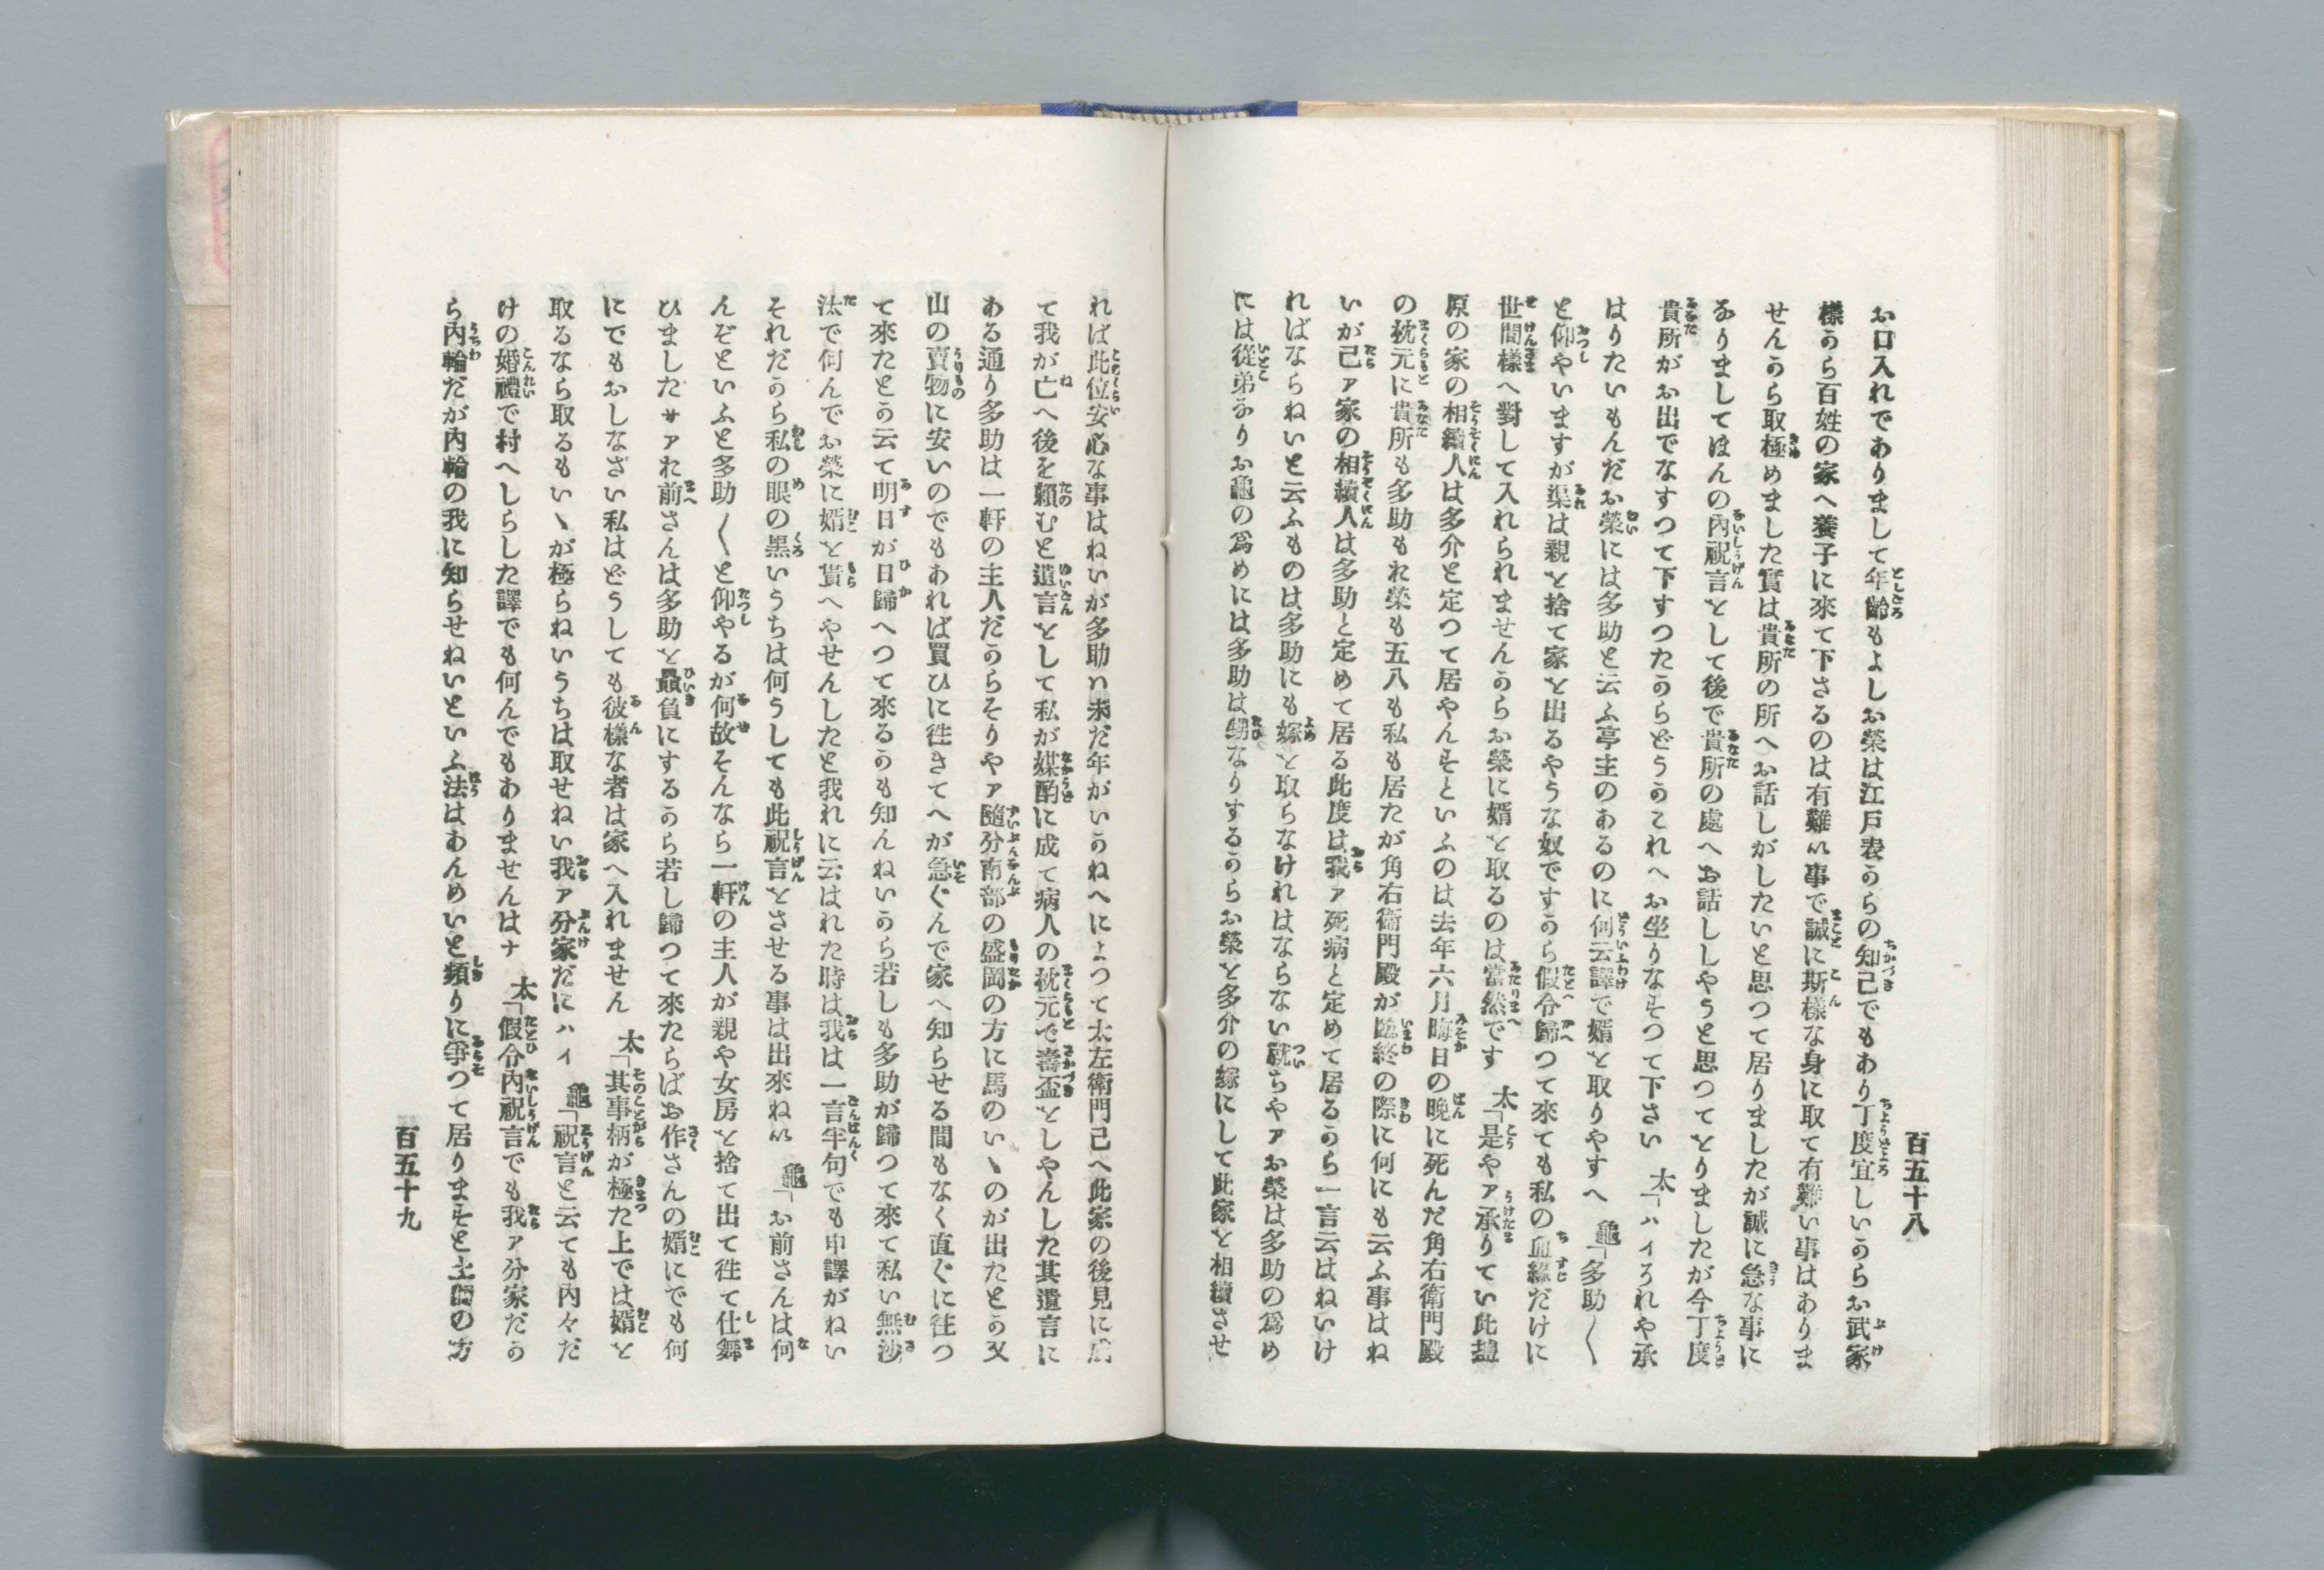 百五十八
お口入れでありまして年齡もよしお榮は江戸表うらの知己でもあり丁度宜しいうらお武家
樣うら百姓の家へ養子に來て下さるのは有難い事で誠に斯樣な身に取て有難い事はありま
せんうら取極めました實は貴所の所へお話しがしたいと思つて居りましたが誠に急な事に
なりましてほんの內祝言として後で貴所の處へお話ししやうと思つてとりましたが今丁度
貴所がお出でなすつて下すつたうらどううこれへお坐りなそつて下さい　太「ハイろれや承
はりたいもんだお榮には多助と云ふ亭主のあるのに何云譯で婿と取りやすへ　龜「多助〱
と仰やいますが渠は親と捨て家と出るやうな奴ですうら假令歸つて來ても私の血緣だけに
世間樣へ對して入れられませんうらお榮に婿と取るのは當然です　太「是やァ承りてい此鹽
原の家の相續人は多介と定つて居やんそといふのは去年六月晦日の晚に死んだ角右衛門殿
の枕元に貴所も多助もれ榮も五八も私も居たが角右衞門殿が臨終の際に何にも云ふ事はね
いが己ァ家の相續人は多助と定めて居る此度は我ァ死病と定めて居るうら一言云はねいけ
ればならねいと云ふものは多助にも嫁と取らなけれはならない就ちやァお榮は多助の爲め
には從弟なりお龜の爲めには多助は甥なりするうらお榮と多介の嫁にして此家と相續させ
れば此位安心な事はねいが多助ハ未だ年がいうねへによつて太左衞門己へ此家の後見に成
て我が亡へ後を賴むと遺言として私が媒酌に成て病人の枕元で壽盃としやんした其遺言に
ある通り多助は一軒の主人だうらそりやァ隨分南部の盛岡の方に馬のいゝのが出たとう又
山の賣物に安いのでもあれば買ひに徃きてへが急ぐんで家へ知らせる間もなく直ぐに往つ
て來たとう云て明日が日歸へつて來るうも知んねいうら若しも多助が歸つて來て私い無沙
汰で何んでお榮に婿と貰へやせんしたと我れに云はれた時は我は一言半句でも申譯がねい
それだうら私の眼の黑いうちは何うしても此祝言とさせる事は出來ねい　龜「お前さんは何
んぞといふと多助〱と仰やるが何故そんなら一軒の主人が親や女房と捨て出て徃て仕舞
ひましたサァれ前さんは多助と贔負にするうら若し歸つて來たらばお作さんの婿にでも何
にでもおしなざい私はどうしても彼樣な者は家へ入れません　太「其事柄が極た上では婿と
取るなら取るもいゝが極らねいうちは取せねい我ァ分家だにハイ　龜「祝言と云ても內々だ
けの婚禮で村へしらした譯でも何んでもありませんはナ　太「假令內祝言でも我ァ分家だう
ら內輪だが內輪の我に知らせねいといふ法はあんめいと頻りに爭つて居りまそと土間の方
百五十九